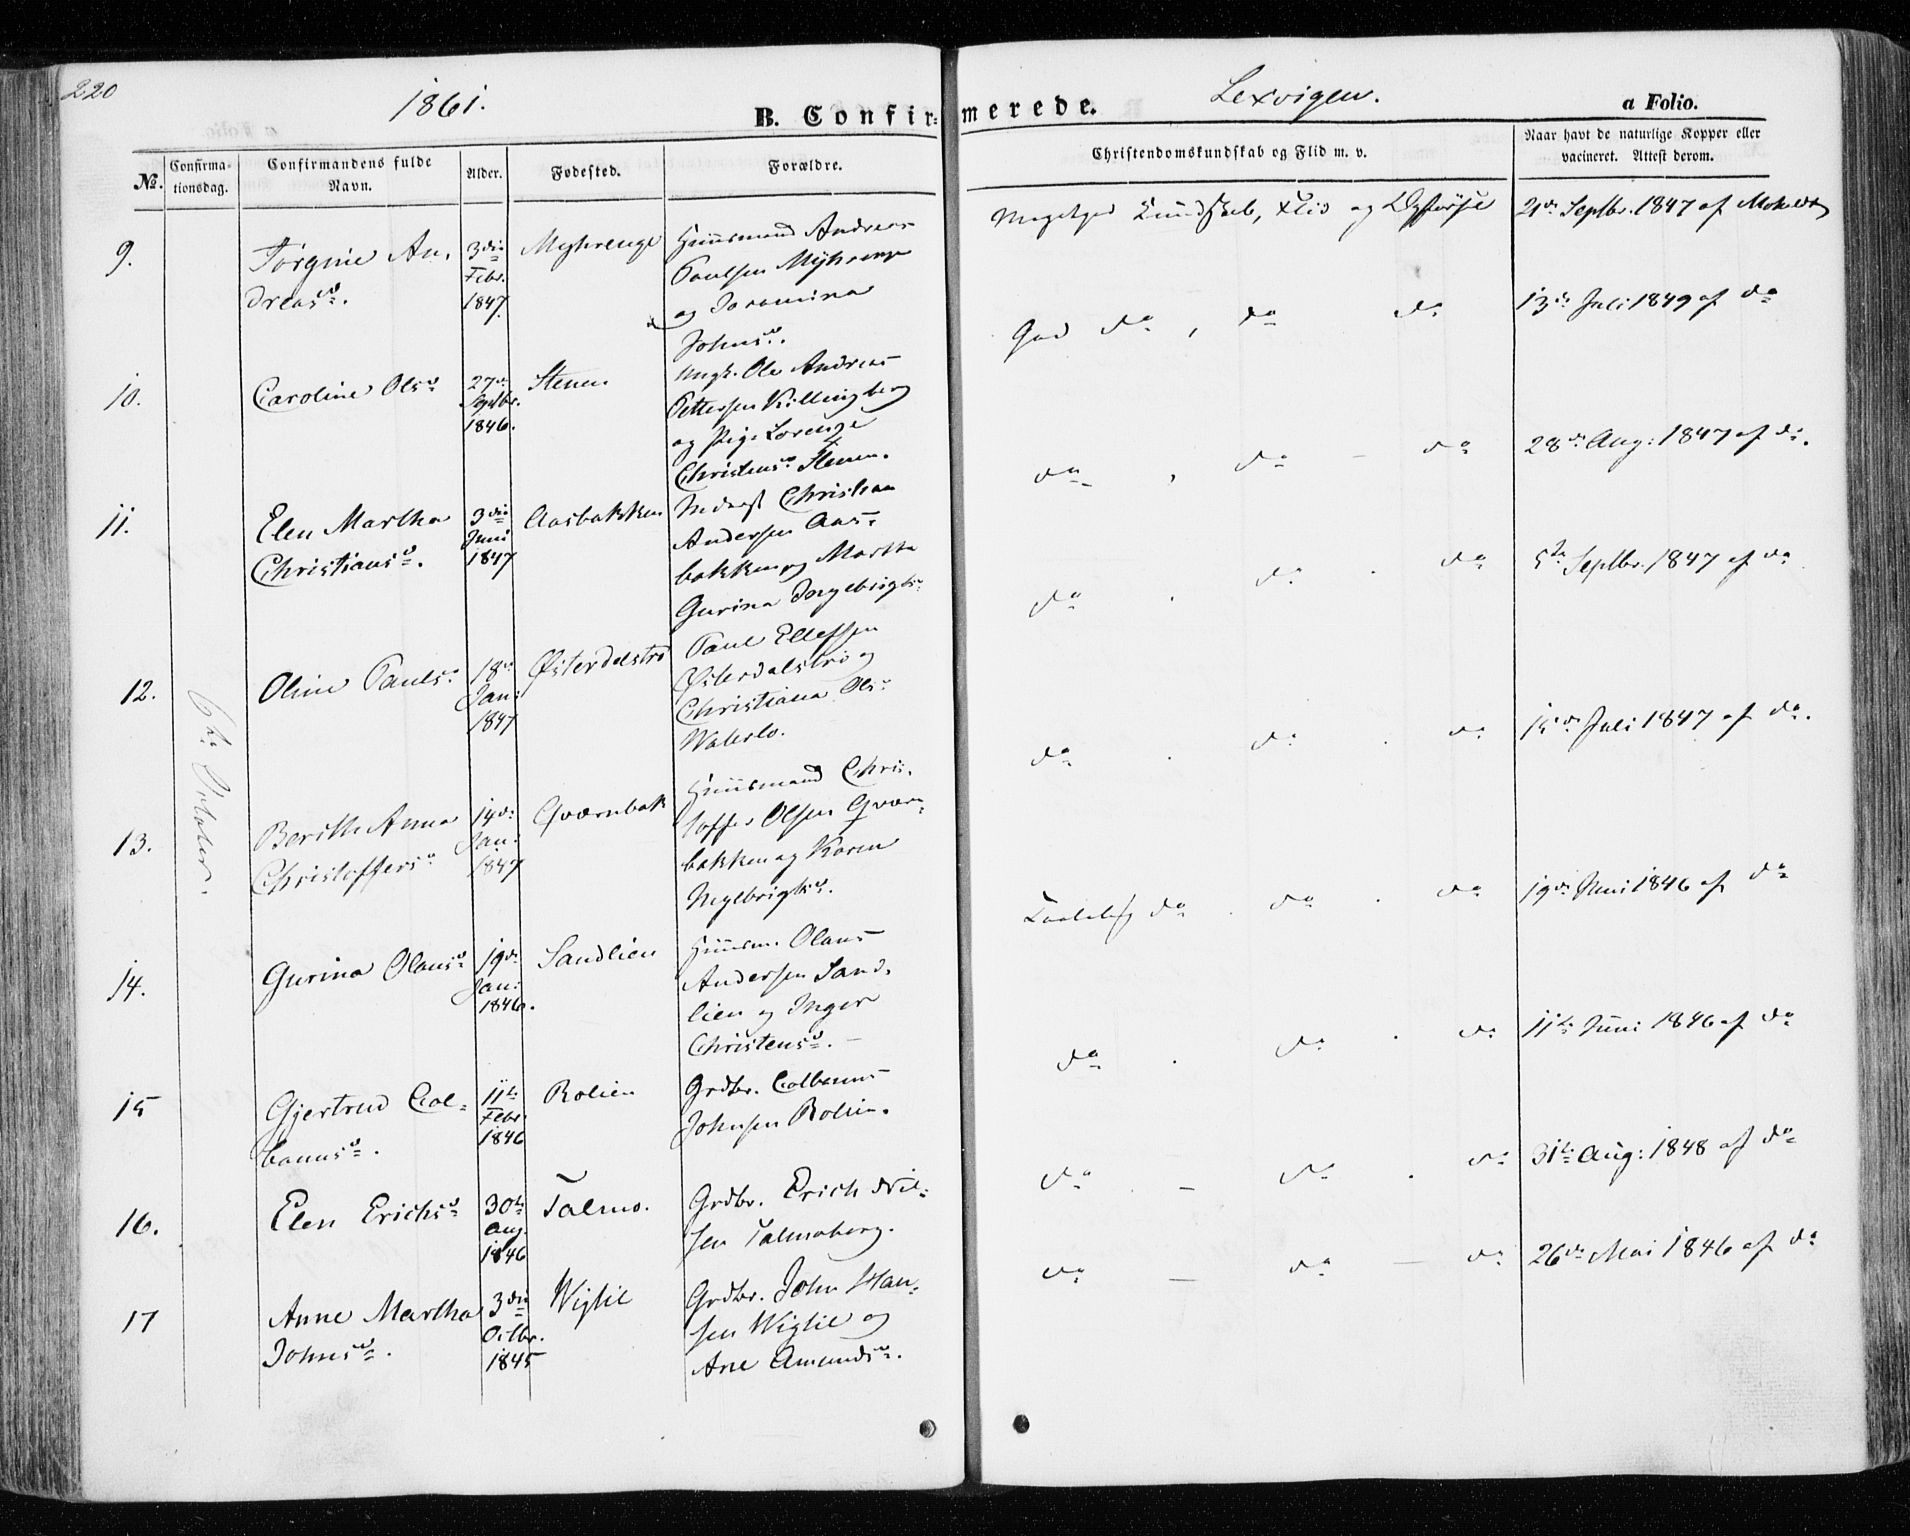 220
1861.
B. Confir-
merede.
Lexvigen.
a Folio.
No.
Confirma-
tionsdag.
Confirmandens fulde
Navn.
Alder.
Fødested.
Forældre.
Christendomskundskab og Flid m. v.
Naar havt de naturlige Kopper eller
vacineret. Attest derom.
6te October.
9.
Jørgine An-
dreasd.
3die
Febr.
1847.
Myhrenge
Huusmand Andreas
Paulsen Myhrenge
og
Johnsd.
Megetgod Kundskab, Flid og
21de Septbr. 1847 af
10.
Caroline Olsd
27de
Septbr.
1846.
Stenen
Ungk. Ole Andreas
Pettersen Killingberg
og Pige Lorense
Christensd. Stenen.
God do, do do
13de Juli 1849 af do
11.
Elen Martha
Christiansd.
3die
Juni
1847
Aasbakken
Inderst Christian
Andersen Aas-
bakken og Martha
Gurina Ingebrigtsd
do, do - do
28de Aug: 1847 af do.
12.
Oline Paulsd.
18de
Jan:
1847
Østerdalstrø
Paul Ellefsen
Østerdalstrø og
Christiana Olsd
do . do . do
5te Septbr. 1847 af do
13.
Berith Anna
Christoffersd
14de
Jan:
1847
Qværnbak
Huusmand Chris-
toffer Olsen Qværn-
bakken og Karen
Ingebrigtsd.
do . do . do
15de Juli 1847 af do.
14.
Gurina Olausd
19de
Jan:
1846.
Sandlien
Huusm. Olaus
Andersen Sand-
lien og Inger
Christensd.
do . do . do
19de Juni 1846 af do
15
Gjertrud Col-
banusd.
11te
Febr.
1846
Rolien
Grdbr. Colbanus
Johnsen Rolien.
do . do . do
11te Juni 1846 af do
16.
Elen Erichsd
30te
Aug.
1846
Talmo.
Grdbr. Erich Nil-
sen Talmoberg.
do . - do . do
31te Aug: 1848 af do
17
Anne Martha
Johnsd.
3die
Octbr.
1845
Wigtil
Grdbr. John Han-
sen Wigtil og
Ane Amundsd.
do - do - do
26de Mai 1846 af do